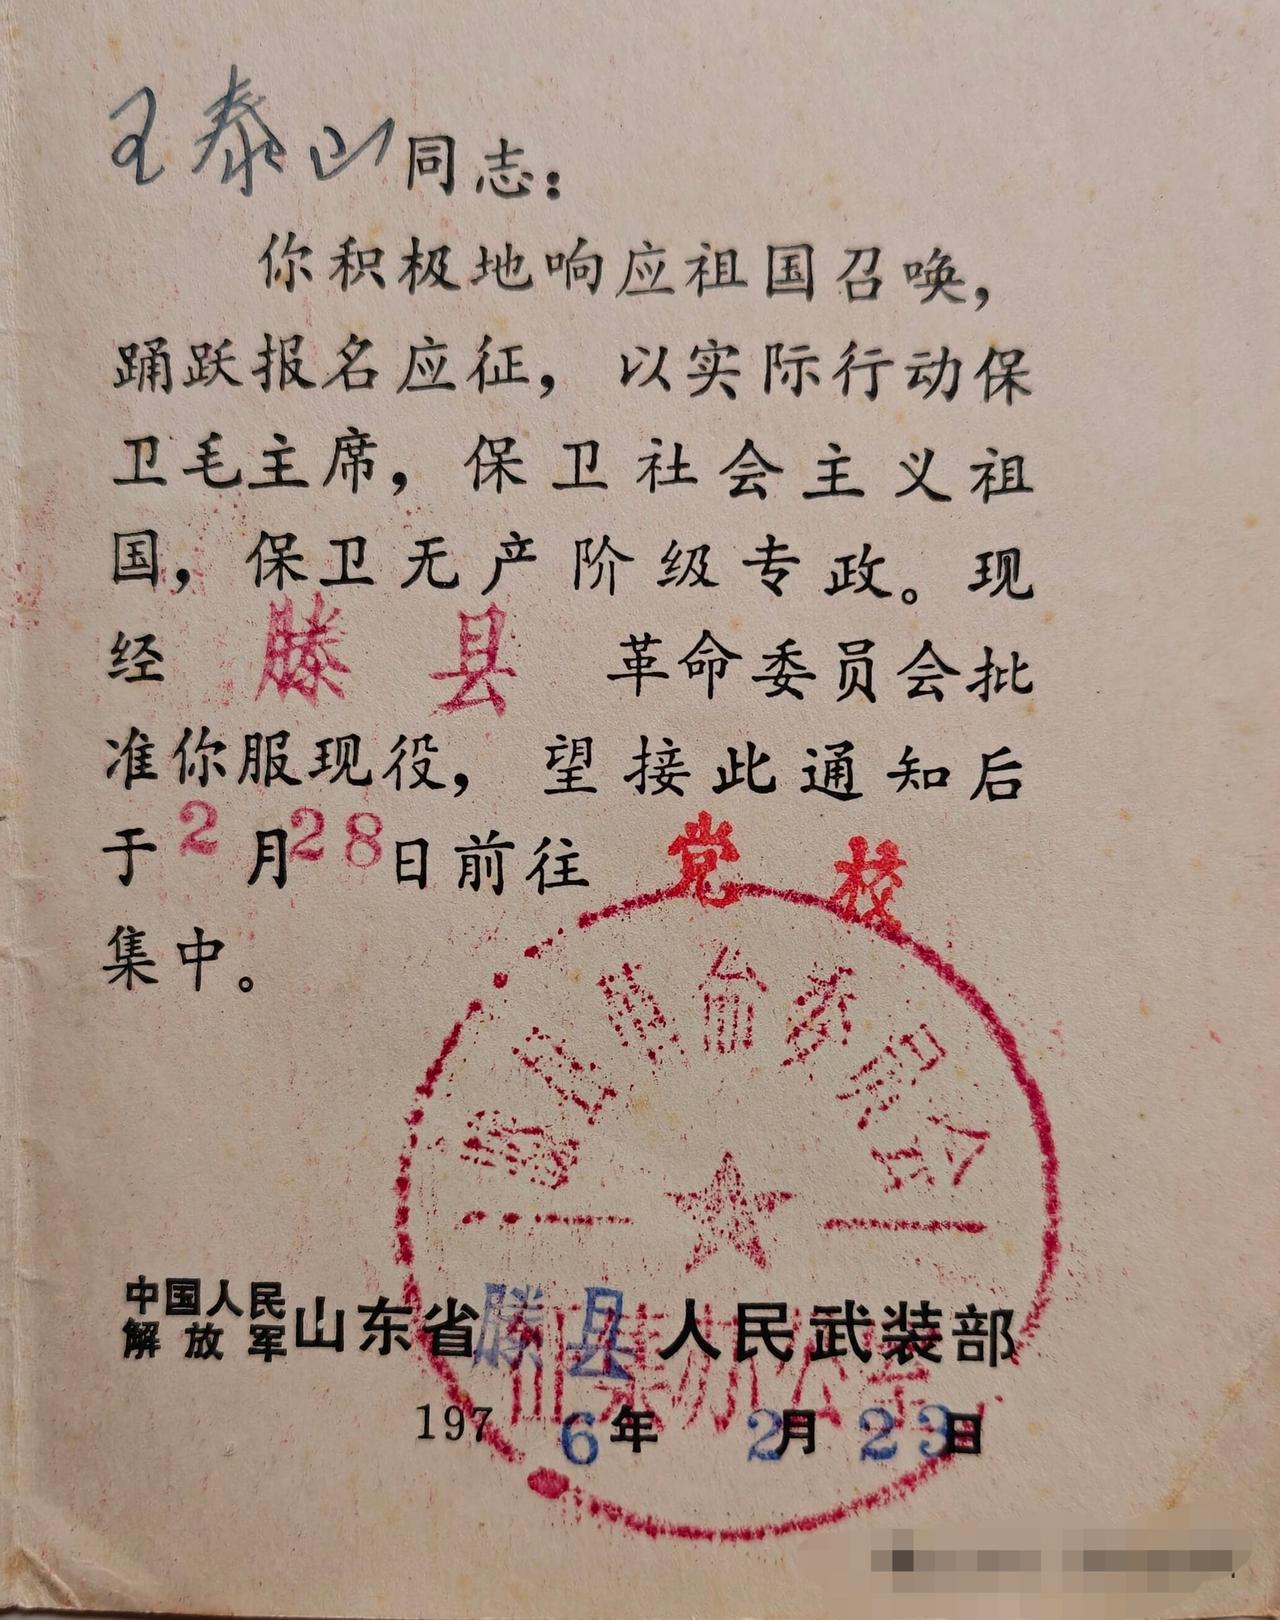 王泰山同志：
你积极地响应祖国召唤，
踊跃报名应征，以实际行动保
卫毛主席，保卫社会主义祖
国，保卫无产阶级专政。现
经 滕县 革命委员会批
准你服现役，望接此通知后
于2月28日前往 党校
集中。
滕县革命委员会
征集办公室
中国人民解放军山东省滕县人民武装部
1976年2月23日